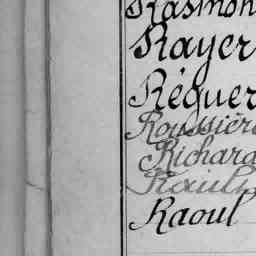 Rasmon
Rayer
Réquer
Roussière
Richard
Raoul